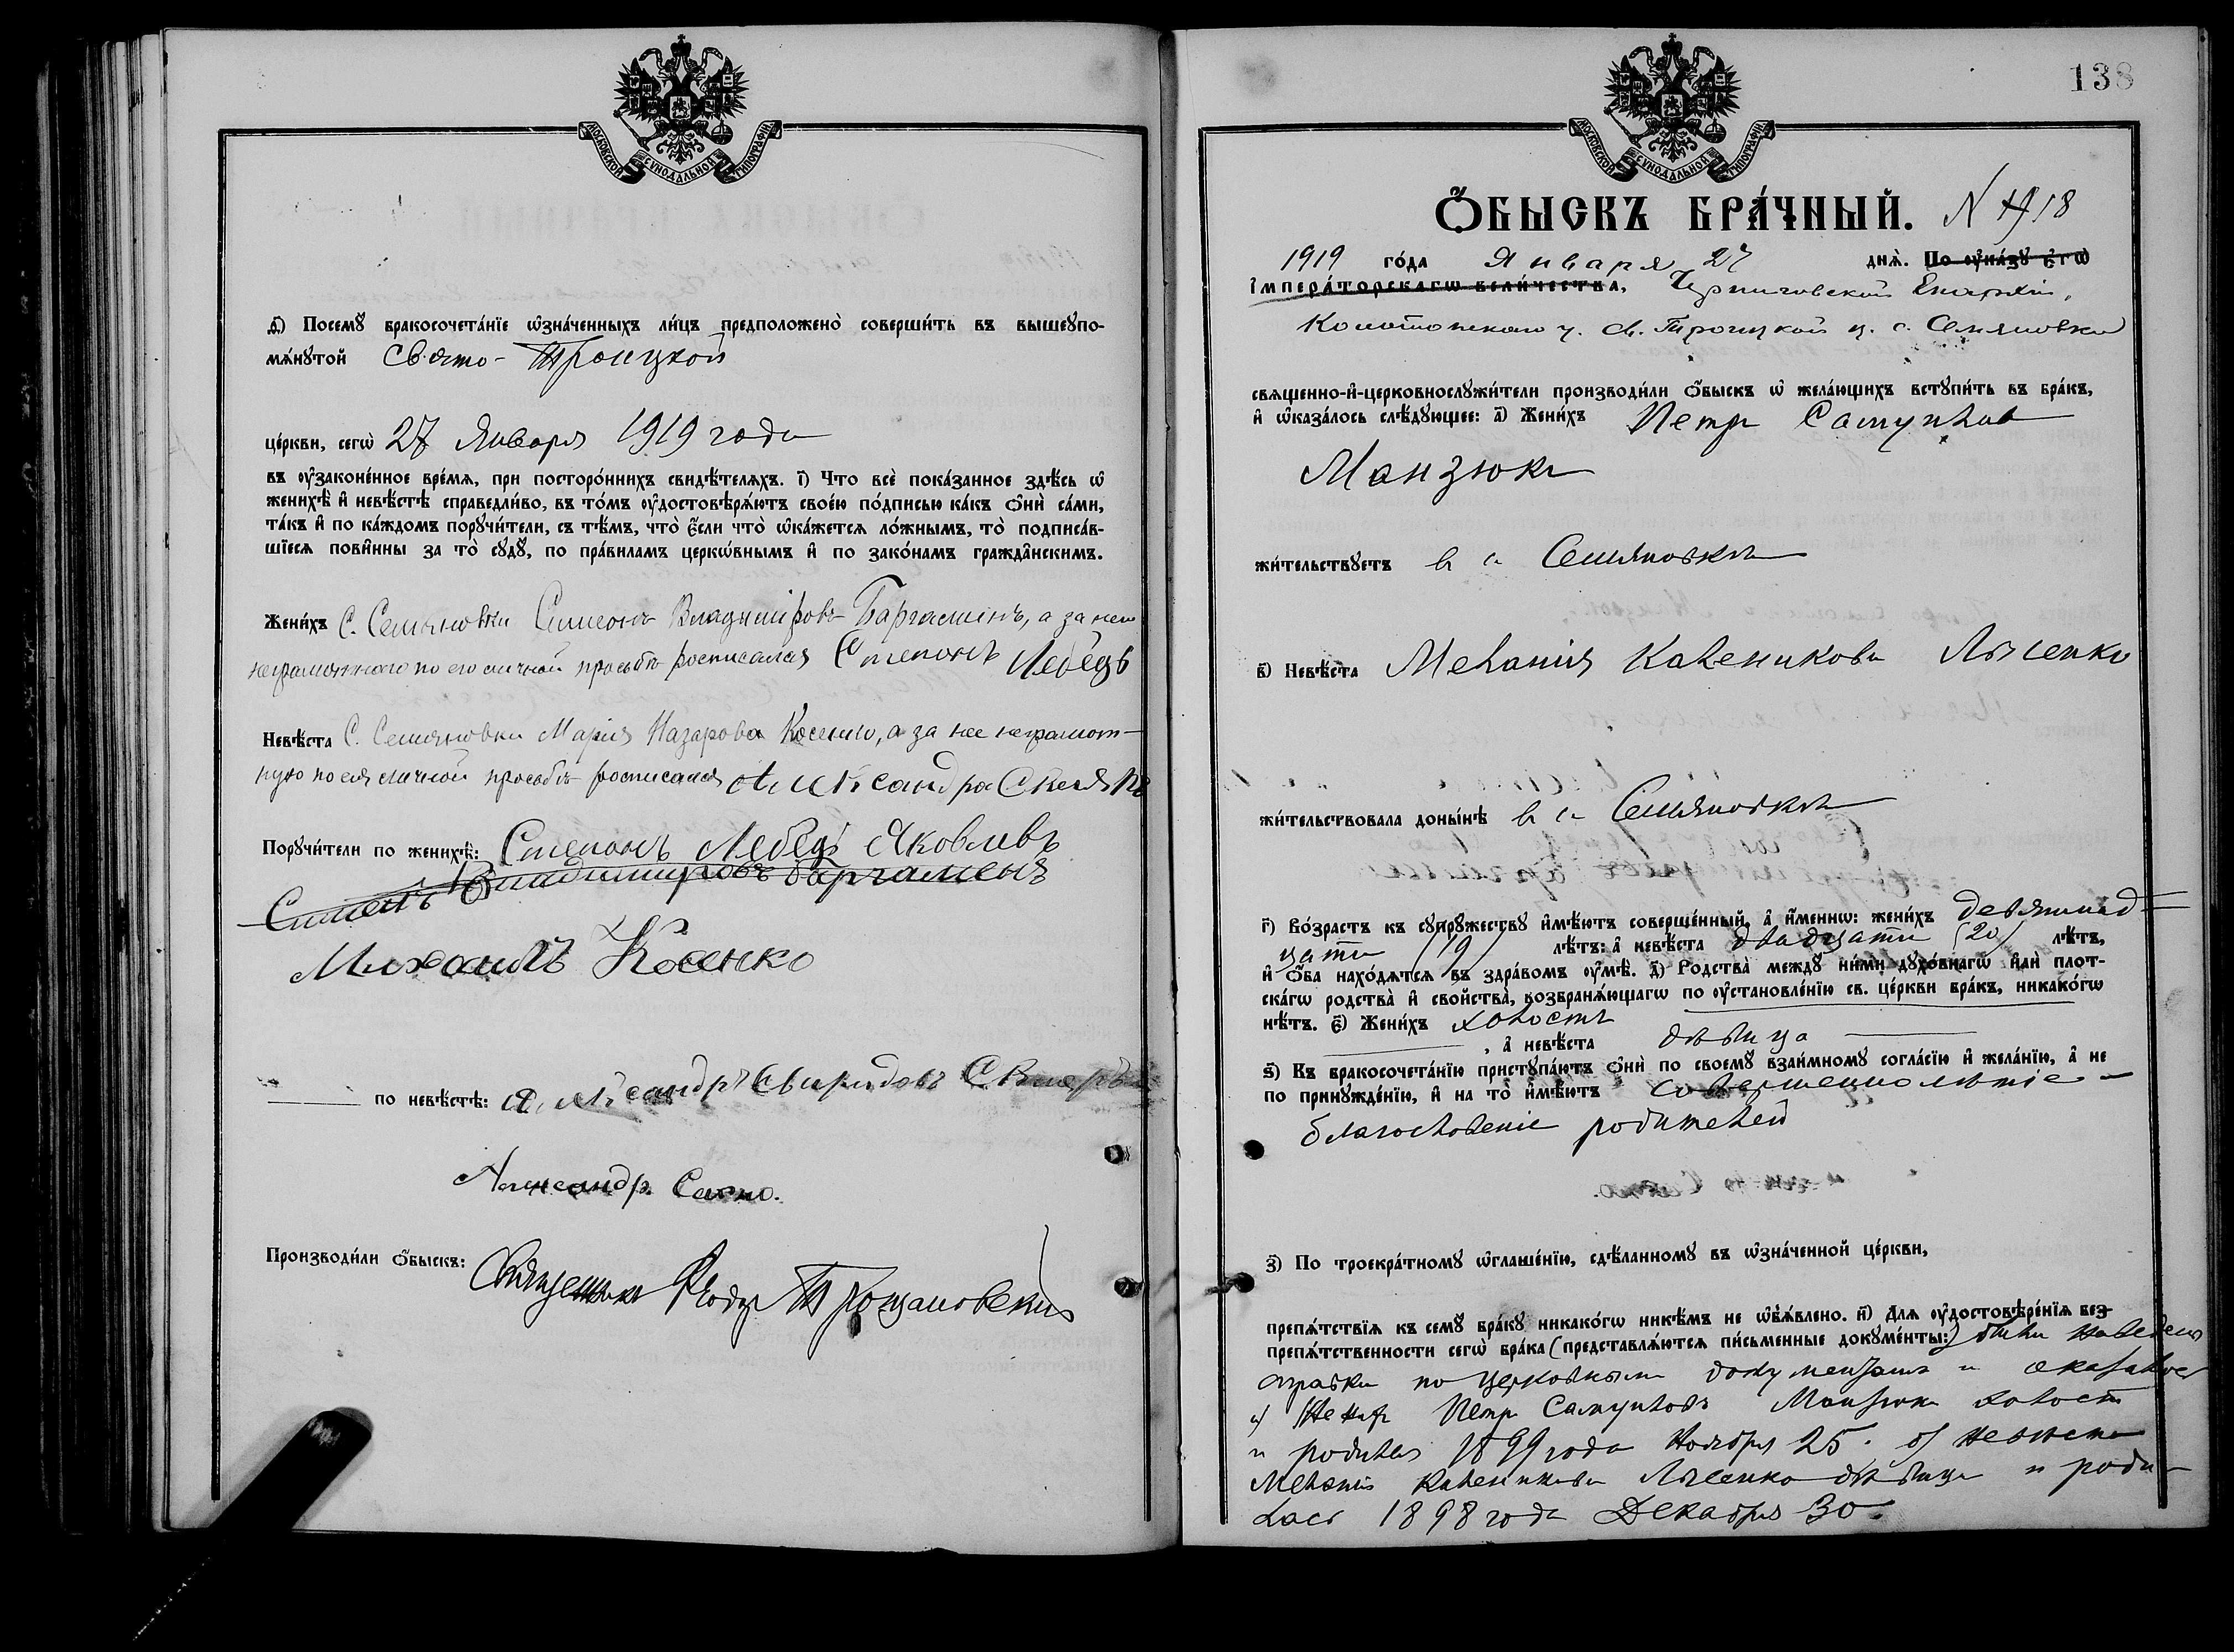 МОСКОВСКОЙ СѴНОДАЛЬНОЙ ТИПОГРАФІИ
ѳ҃) Посемꙋ̀ бракосочета́нїе ѡ҆зна́ченныхъ ли́цъ предположено̀ соверши́ть въ вышеꙋпо-
мѧ́нꙋтой Свято-Троицкой
це́ркви, сегѡ̀ 27 Января 1919 года
въ ᲂу҆законе́нное вре́мѧ, при посторо́ннихъ свидѣ́телѧхъ. і҃) Что всѐ пока́занное здѣ́сь ѡ҆
женихѣ̀ и҆ невѣ́стѣ справедли́во, въ то́мъ ᲂу҆достовѣрѧ́ютъ свое́ю по́дписью ка́къ ѻ҆нѝ са́ми,
та́къ и҆ по ка́ждомъ порꙋчи́тели, съ тѣ́мъ, что̀ є҆́сли что̀ ѡ҆ка́жетсѧ ло́жнымъ, то̀ подписа́в-
шїесѧ пови́нны за то̀ сꙋдꙋ̀, по пра́виламъ церкѡ́внымъ и҆ по зако́намъ гражда̑нскимъ.
Жени́хъ С. Семяновки Симеонъ Владиміровъ Баргаменъ, а за него
неграмотнаго по его личной просьбѣ росписался Степанъ Лебедь
Невѣ́ста С. Семяновки Марія Назарова Косенко, а за нее неграмот-
ную по ея личной просьбѣ росписался Александра
Порꙋчи́тели по женихѣ̀: Степанъ Лебедь Яковлевъ
Симеонъ Владиміровъ Баргаменъ
Михаилъ Косенко
по невѣ́стѣ: Александръ Свиридовъ
Александръ
Производи́ли ѻ҆́быскъ: Священникъ Ѳеодоръ Трощановскій
138
МОСКОВСКОЙ СѴНОДАЛЬНОЙ ТИПОГРАФІИ
Ѻ҆́БЫСКЪ БРА́ЧНЫЙ. N 18
1919 го́да Января 27 днѧ̀. По ᲂу҆ка́зꙋ є҆гѡ̀
і҆мпера́торскагѡ вели́чества, Черниговской Епархіи,
Конотопскаго у. Св. Троицкой ц. с. Семяновки
свѧщенно-и҆-церковнослꙋжи́тели производи́ли ѻ҆́быскъ ѡ҆ жела́ющихъ встꙋпи́ть въ бра́къ,
и҆ ѡ҆каза́лось слѣ́дꙋющее: а҃) Жени́хъ Петръ Самуилов
Манзюкъ
жи́тельствꙋетъ в с. Семяновкѣ
в҃) Невѣ́ста Меланія Каленикова Лысенко
жи́тельствовала доны́нѣ в с. Семяновкѣ
г҃) Во́зрастъ къ сꙋпрꙋ́жествꙋ и҆мѣ́ютъ соверше́нный, а҆ и҆́меннѡ: жени́хъ девятнад-
цати /19/ лѣ́тъ: а҆ невѣ́ста двадцати (20) лѣ́тъ,
и҆ ѻ҆́ба нахо́дѧтсѧ въ здра́вомъ ᲂу҆мѣ̀. д҃) Родства̀ междꙋ̀ ни́ми дꙋхо́внагѡ и҆лѝ плот-
ска́гѡ родства̀ и҆ сво́йства̀, возбранѧ́ющагѡ по ᲂу҆становле́нїю св. це́ркви бра́къ, никако́гѡ
нѣ́тъ. є҃) Жени́хъ холостъ
, а҆ невѣ́ста дѣвица
ѕ҃) Къ бракосочета́нїю пристꙋпа́ютъ ѻ҆нѝ по своемꙋ̀ взаи́мномꙋ согла́сїю и҆ жела́нїю, а҆ не
по принꙋжде́нїю, и҆ на то̀ и҆мѣ́ютъ совершеннолѣтіе
благословеніе родителей
з҃) По троекра́тномꙋ ѡ҆глаше́нїю, сдѣ́ланномꙋ въ ѡ҆зна́ченной це́ркви,
препѧ́тствїѧ къ семꙋ̀ бра́кꙋ никако́гѡ никѣ́мъ не ѡ҆б̾ѧ́влено. и҃) Длѧ ᲂу҆достовѣре́нїѧ без-
препѧ́тственности сегѡ̀ бра́ка (представлѧ́ютсѧ пи́сьменные докꙋме́нты:) были наведены
справки по церковнымъ документамъ и оказалось
а) Женихъ Петръ Самуиловъ Манзюкъ холостъ
и родился 1899 года Ноября 25. б) невѣста
Меланія Каленикова Лысенко дѣвица и роди-
лась 1898 года Декабря 30.